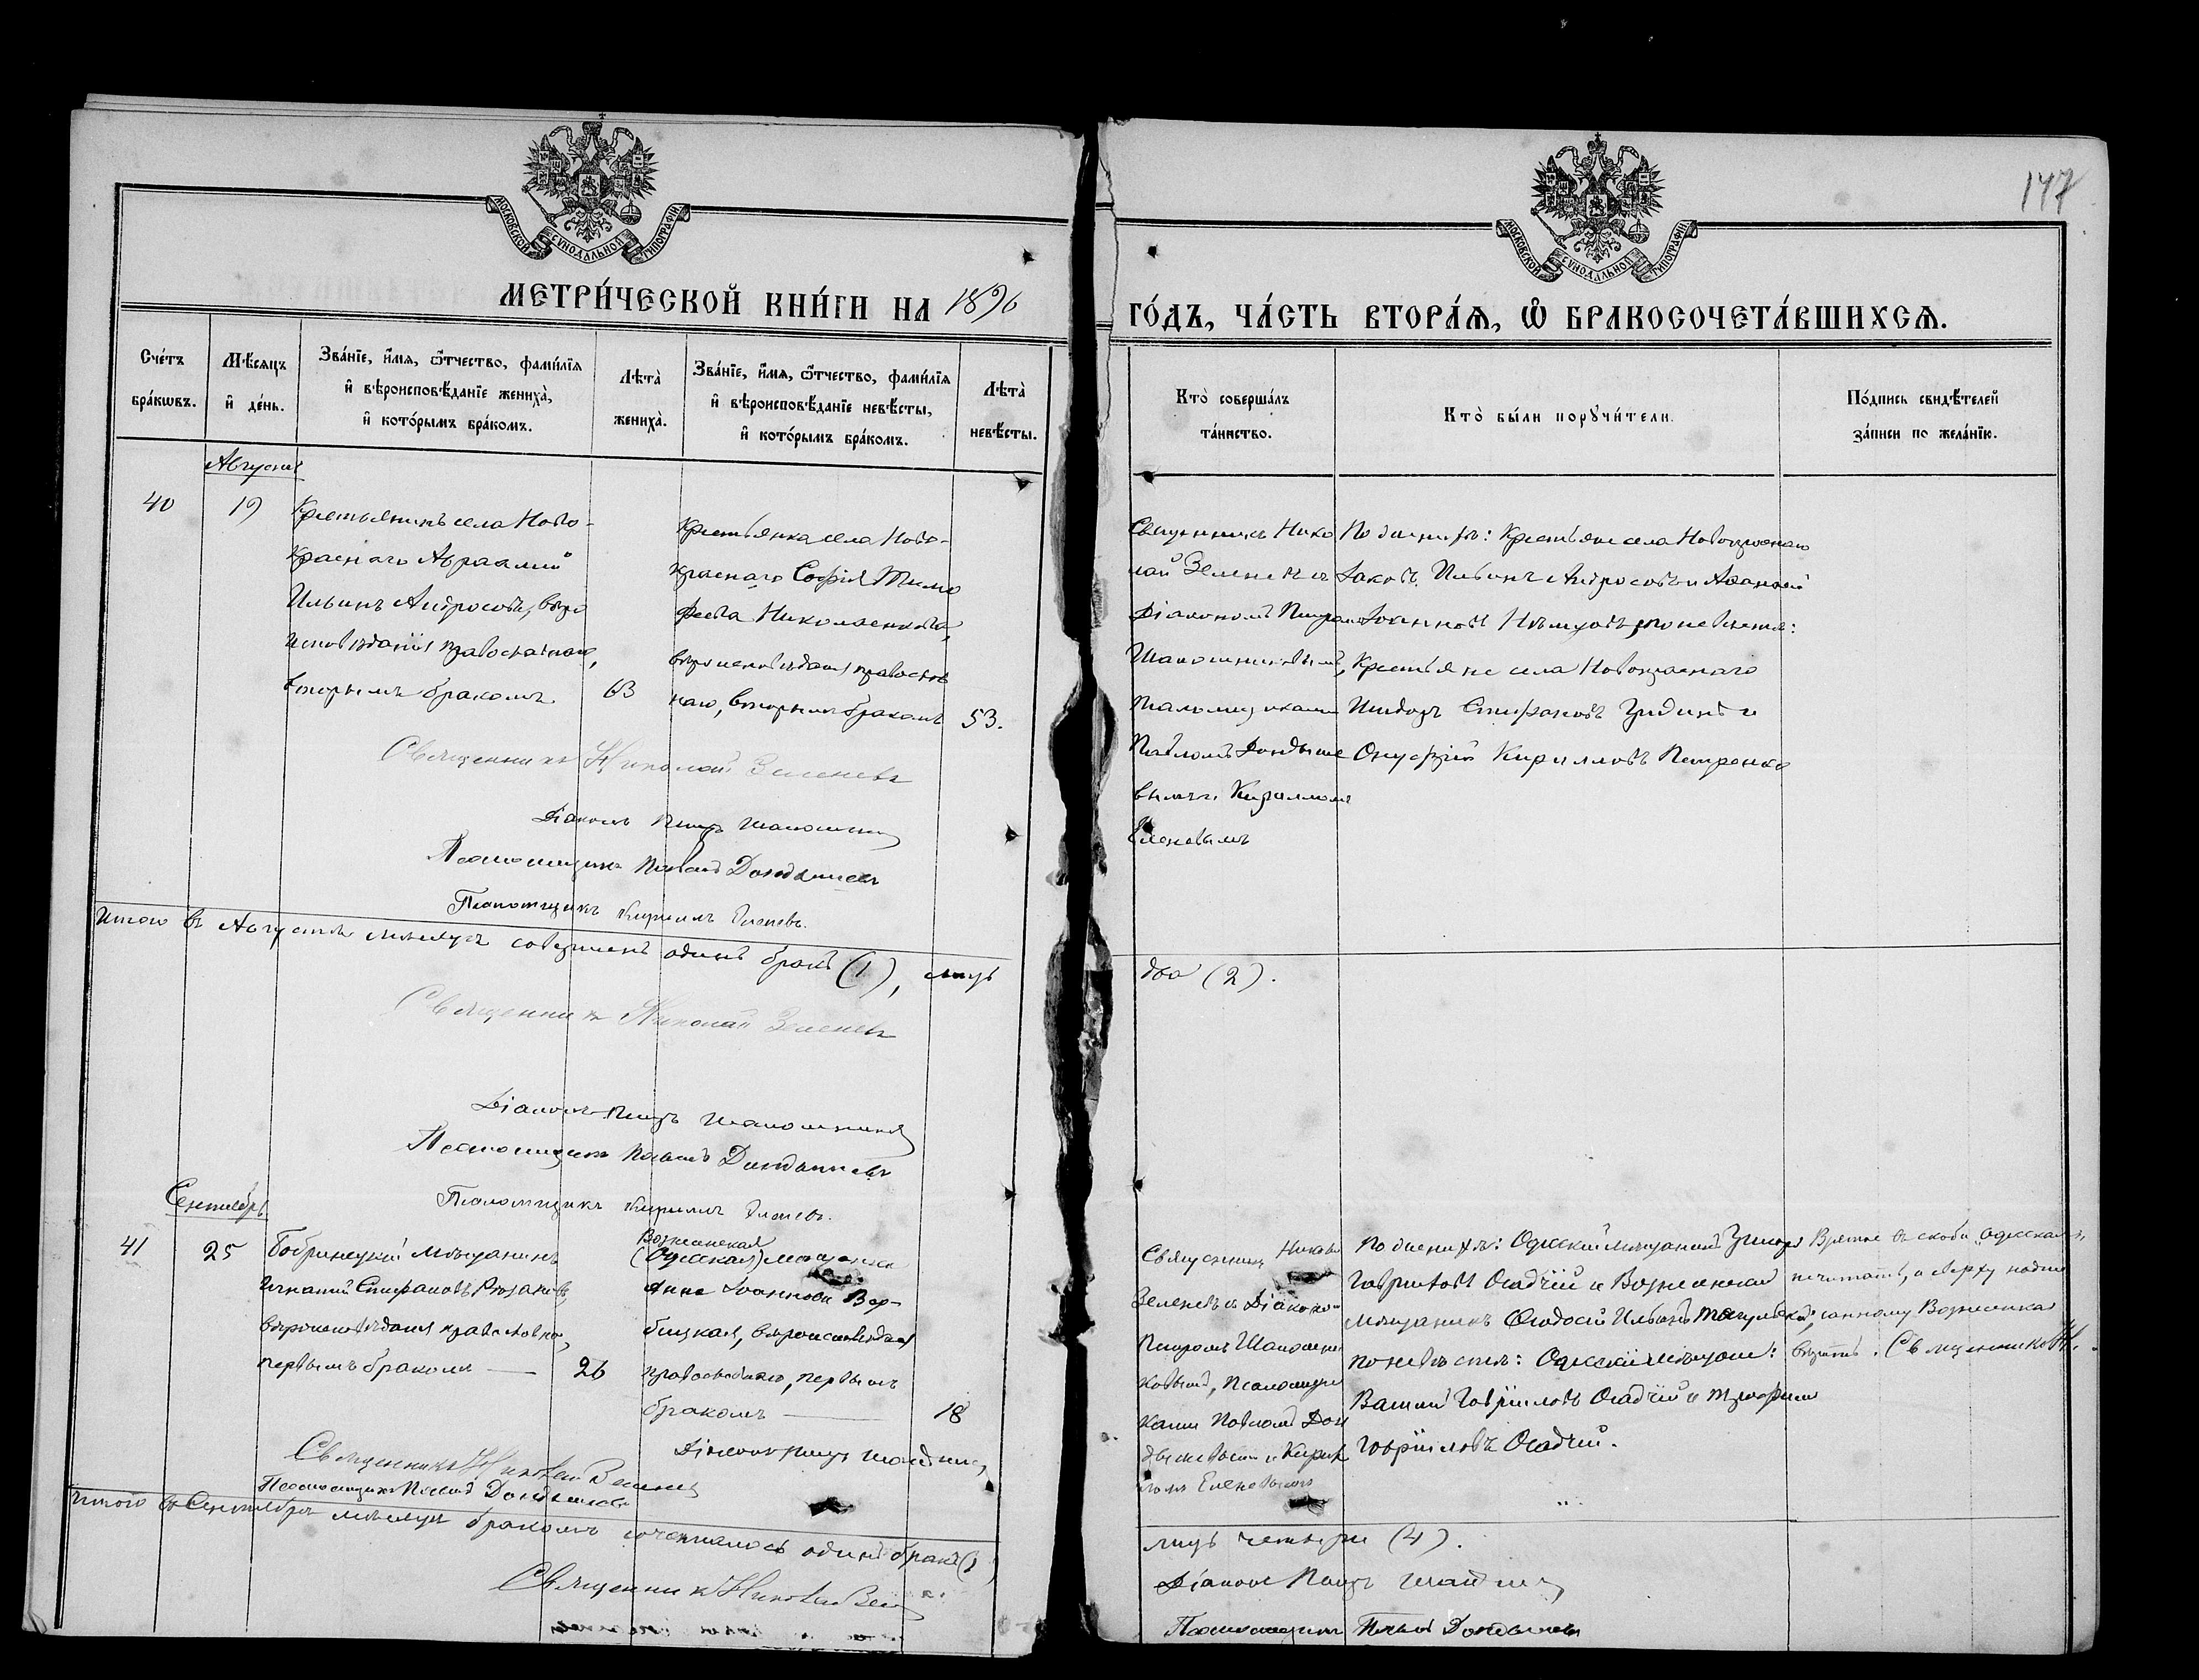 147
МОСКОВСКОЙ СѴНОДАЛЬНОЙ ТИПОГРАФІИ
МОСКОВСКОЙ СѴНОДАЛЬНОЙ ТИПОГРАФІИ
МЕТРИ́ЧЕСКОЙ КНИ́ГИ НА 1896
ГО́ДЪ, ЧА́СТЬ ВТОРА́Ѧ, Ѡ҆ БРАКОСОЧЕТА́ВШИХСѦ.
Сче́тъ
бра́кѡвъ.
Мѣ́сѧцъ
и҆ де́нь.
Зва́нїе, и҆́мѧ, ѻ҆́тчество, фами́лїѧ
и҆ вѣроисповѣ́данїе жениха̀,
и҆ кото́рымъ бра́комъ.
Лѣта̀
жениха̀.
Зва́нїе, и҆́мѧ, ѻ҆́тчество, фами́лїѧ
и҆ вѣроисповѣ́данїе невѣ́сты,
и҆ кото́рымъ бра́комъ.
Лѣта̀
невѣ́сты.
Кто̀ соверша́лъ
та́инство.
Кто̀ бы́ли порꙋчи́тели.
По́дпись свидѣ́телей
за́писи по жела́нїю.
Августъ
40
19
Крестьянинъ села Ново-
краснаго Авраамій
Ильинъ Андросовъ, вѣро
исповѣданія православнаго,
вторымъ бракомъ
63
Крестьянка села Ново-
краснаго Софія Тимо
феева Николаенкова,
вѣроисповѣданія правосла
наго, вторымъ бракомъ
53.
Священникъ Нико
лай Зеленевъ съ
Діакономъ Петромъ
Шапошниковымъ,
Псаломщиками
Павломъ Дондыше
вымъ и Кирилломъ
Еленевымъ
По женихѣ: Крестьяне села Новокраснаго
Іаковъ Ильинъ Андросовъ и Афанасій
Іоанновъ Нѣмцовъ; по невѣстѣ:
Крестьяне села Новокраснаго
Исидоръ Стефановъ и
Онуфрій Кирилловъ Петренко
Священникъ Николай Зеленевъ
Діаконъ Петръ Шапошник
Псаломщикъ Павелъ Дондышевъ
Псаломщикъ Кириллъ Еленевъ.
Итого въ Августѣ мѣсяцѣ совершенъ одинъ бракъ (1), лицъ
два (2).
Священникъ Николай Зеленевъ
Діаконъ Петръ Шапошников
Псаломщикъ Павелъ Дондышевъ
Псаломщикъ Кириллъ Еленевъ.
Сентябрь
41
25
Бобринецкій мѣщанинъ
Игнатій Стефановъ Рязановъ,
вѣроисповѣданія православна,
первымъ бракомъ
26
Вознесенская
(Одесская) мѣщанка
Анна Іоаннова Вер-
бицкая, вѣроисповѣданія
православнаго, первымъ
бракомъ
18
Священникъ Никола
Зеленевъ съ Діаконо
Петромъ Шапошни
ковымъ, Псаломщи
ками Павломъ Дон
дышевымъ и Кирил
ломъ Еленевымъ
По женихѣ: Одесскій мѣщанинъ
Гавріиловъ Осадчій и Вознесенскій
мѣщанинъ Феодосій Ильинъ
по невѣстѣ: Одесскіе мѣщане:
Василій Гавріиловъ Осадчій и Трофимъ
Гавріиловъ Осадчій.
Взятое въ скобки „Одесская“
не читать, а сверху напис
анному Вознесенская
вѣрить. Священникъ Н.
Діаконъ Петръ Шапошник
Священникъ Николай Зеленев
Псаломщикъ Павелъ Дондышевъ
Итого въ Сентябрѣ мѣсяцѣ бракомъ сочеталось одинъ бракъ (1)
лицъ четыри (4).
Священникъ Николай Зелен
Діаконъ Петръ Шапошник
Псаломщикъ Павелъ Дондышевъ